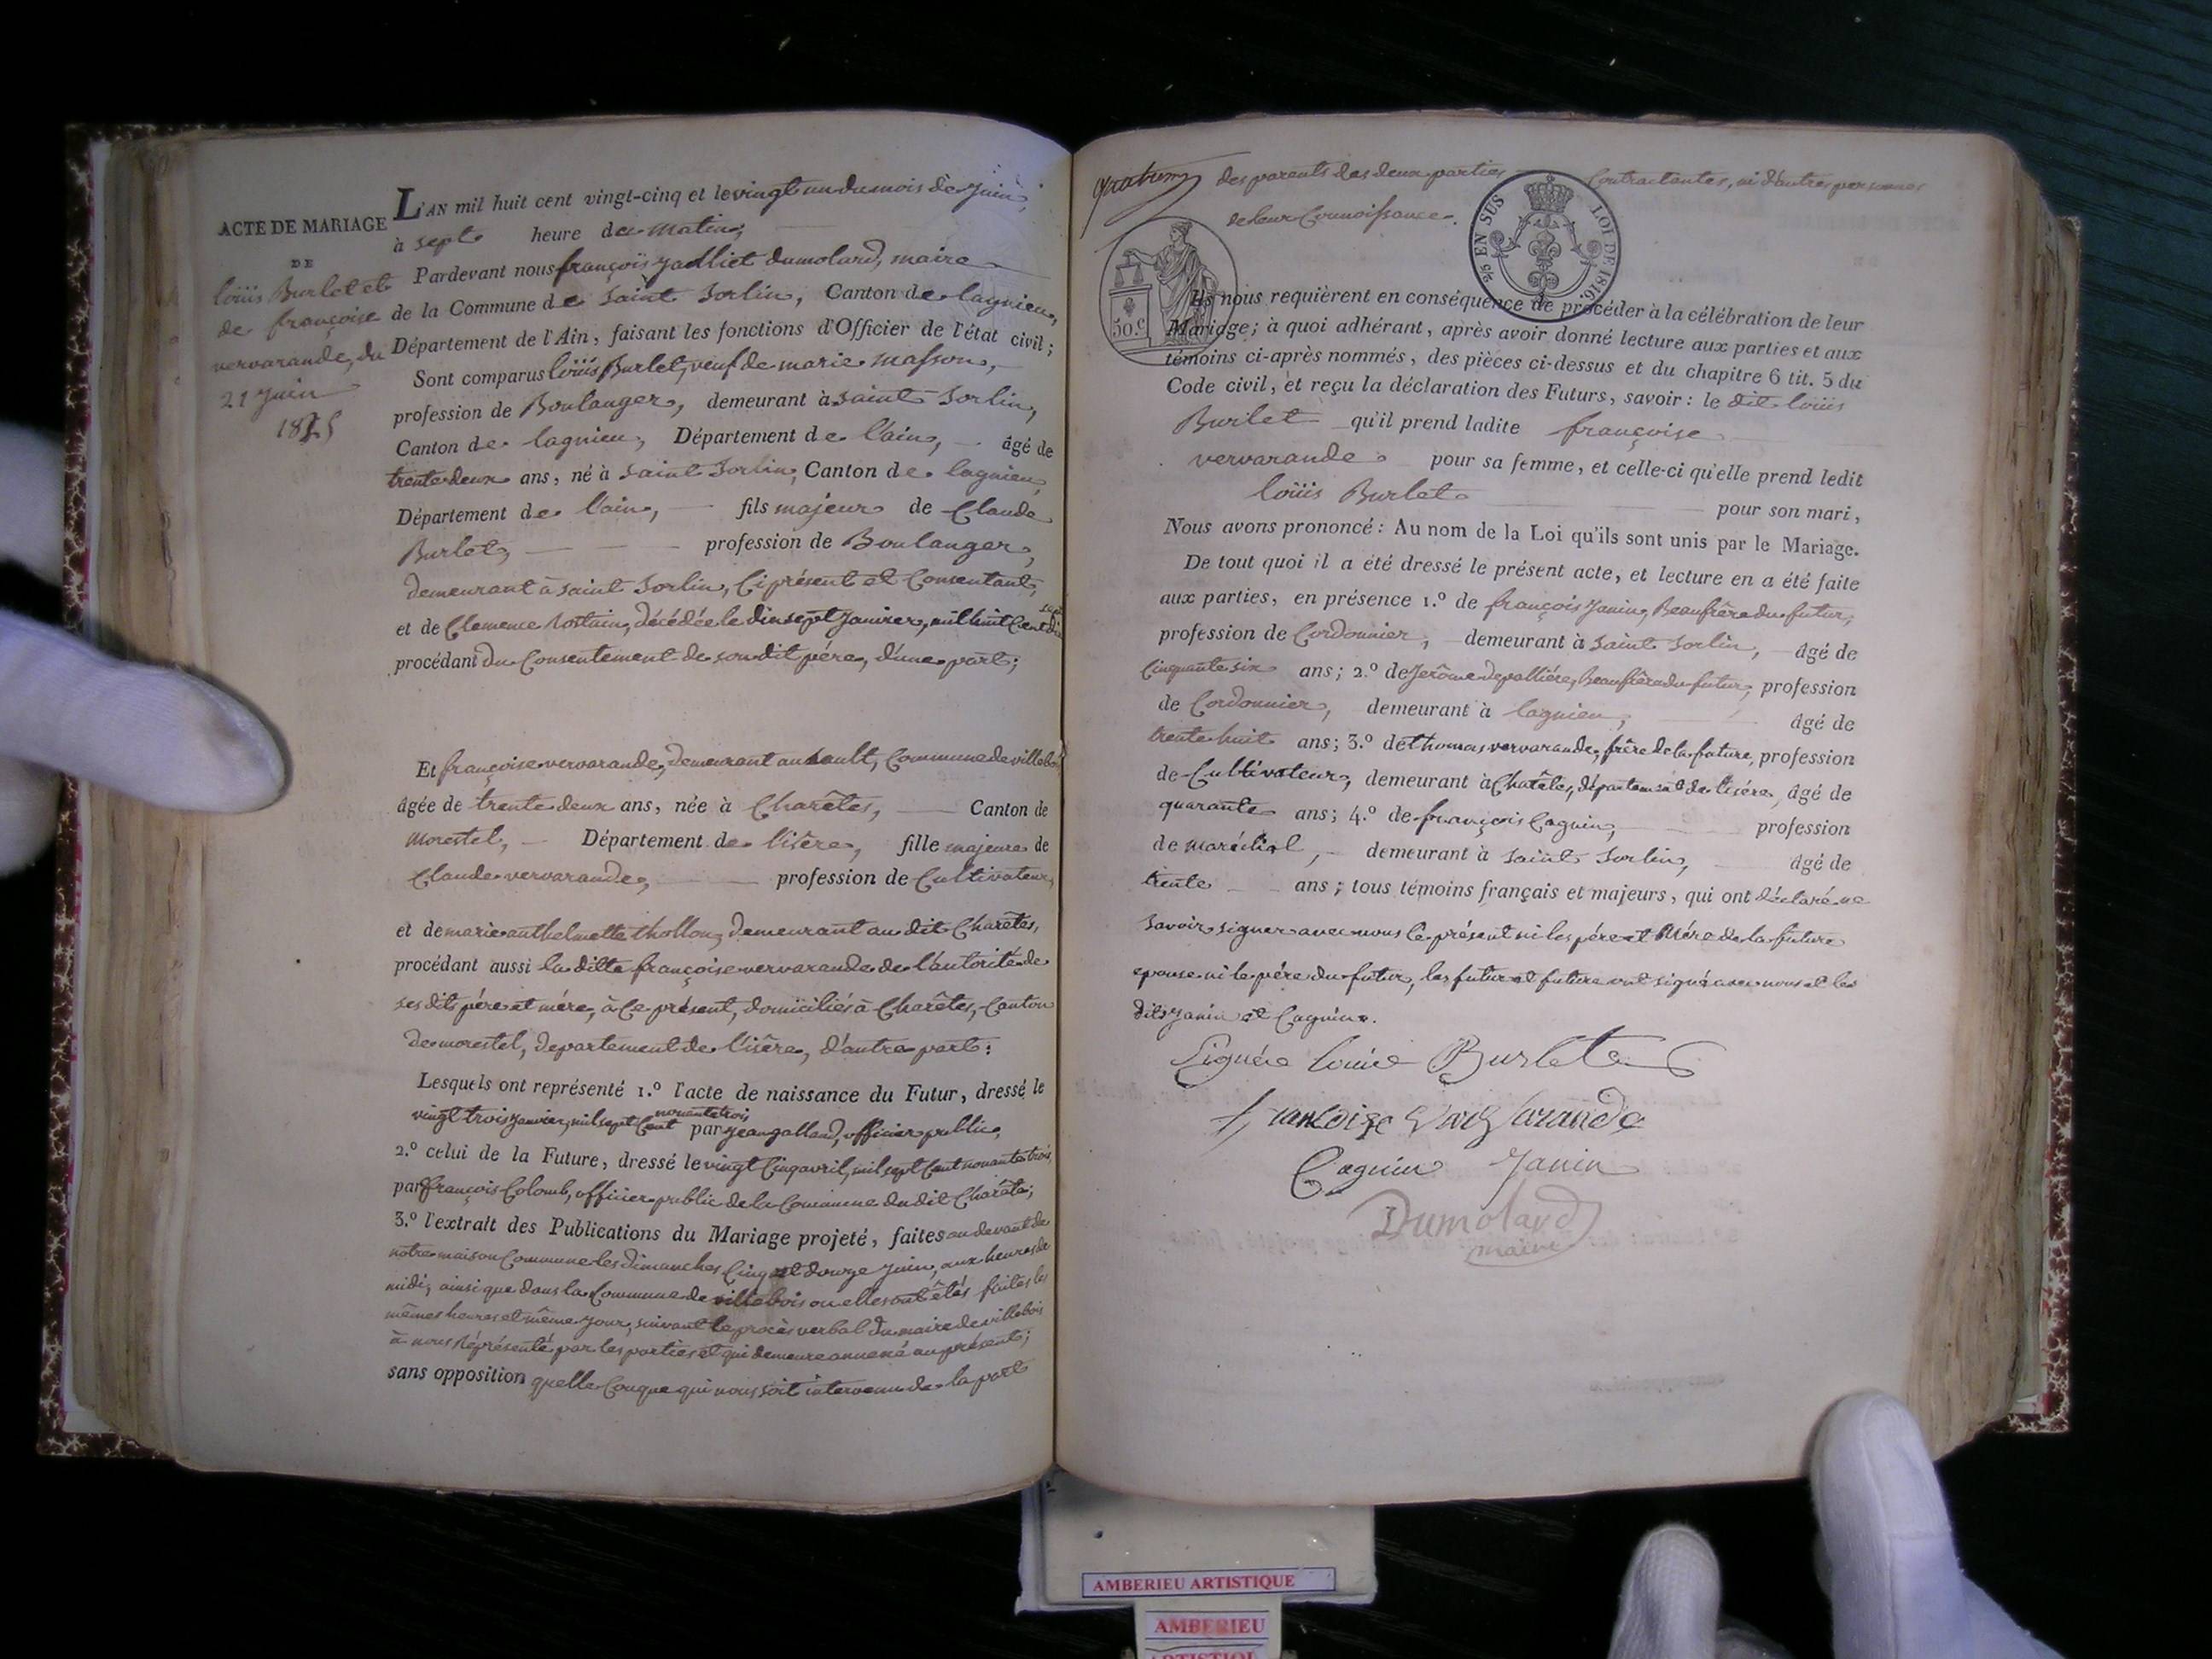 ACTE DE MARIAGE
DE
loüis Burlet et
de françoise
vervarande, du
21 Juin
1825
L'AN mil huit cent vingt-cinq et le vingt un du mois de Juin,
à sept heure du matin,
Pardevant nous françois Dumolard, maire
de la Commune de Saint Sorlin, Canton de lagnieu,
Département de l'Ain, faisant les fonctions d'Officier de l'état civil;
Sont comparus loüis Burlet, veuf de marie masson,
profession de Boulanger, demeurant à saint Sorlin,
Canton de lagnieu, Département de l'ain, âgé de
trente deux ans, né à saint Sorlin, Canton de lagnieu,
Département de l'ain, fils majeur de Claude
Burlet, profession de Boulanger,
demeurant à saint Sorlin, Ci présent et Consentant,
et de Clemence Rostain, décédée le dix sept Janvier, mil huit Cent
procédant du Consentement de son dit pére, d'une part;
Et françoise vervarande, demeurant au sault, Commune de villebois
âgée de trente deux ans, née à Charêtes, Canton de
morestel, Département de l'isère, fille majeure de
Claude vervarande, profession de Cultivateur,
et de marie anthelmette thollon, demeurant au dit Charêtes,
procédant aussi la ditte françoise vervarande de l'autorité de
ses dits pére et mére, à Ce présent, domiciliés à Charêtes, Canton
de morestel, departement de l'isère, d'autre part:
Lesquels ont représenté 1.º l'acte de naissance du Futur, dressé le
vingt trois Janvier, mil sept Cent nonante trois par Jean galland, officier public,
2.º celui de la Future, dressé le vingt Cinq avril, mil sept Cent nonante trois,
par françois Colomb, officier public de la Commune du dit Charête;
3.º l'extrait des Publications du Mariage projeté, faites au devant de
notre maison Commune les dimanches Cinq et douze Juin, aux heures de
midi, ainsi que dans la Commune de villebois ou elles ont êtés faites les
mêmes heures et même Jour, suivant le procès verbal du maire de villebois
à nous Réprésenté par les parties et qui demeure annexé au présent;
sans opposition quelle Conque qui nous soit intervenu de la part
des parents des deux parties Contractantes, ni d'autres personnes
de leur Connoissance.
2/5 EN SUS LOI DE 1816.
50.C
Ils nous requièrent en conséquence de procéder à la célébration de leur
Mariage; à quoi adhérant, après avoir donné lecture aux parties et aux
témoins ci-après nommés, des pièces ci-dessus et du chapitre 6 tit. 5 du
Code civil, et reçu la déclaration des Futurs, savoir: le dit loüis
Burlet qu'il prend ladite françoise
vervarande pour sa femme, et celle-ci qu'elle prend ledit
loüis Burlet pour son mari,
Nous avons prononcé: Au nom de la Loi qu'ils sont unis par le Mariage.
De tout quoi il a été dressé le présent acte, et lecture en a été faite
aux parties, en présence 1.º de françois Janin, Beaufrère du futur,
profession de Cordonnier, demeurant à saint Sorlin, âgé de
Cinquante six ans; 2.º de Jerôme depallière, beaufrère du futur, profession
de Cordonnier, demeurant à lagnieu, âgé de
trente huit ans; 3.º de thomas vervarande, frère de la future, profession
de Cultivateur, demeurant à Charêtes, département de l'isére, âgé de
quarante ans; 4.º de françois Cagnin, profession
de maréchal, demeurant à saint Sorlin, âgé de
trente ans; tous témoins français et majeurs, qui ont déclaré ne
savoir signer avec nous le présent ni les pére et Mére de la future
epouse ni le pére du futur, les futur et future ont signé avec nous et les
dits Janin et Cagnin.
Signés louis Burlet
francoise vervarande
Cagnin Janin
Dumolard
maire
AMBERIEU ARTISTIQUE
AMBERIEU
ARTISTIQUE